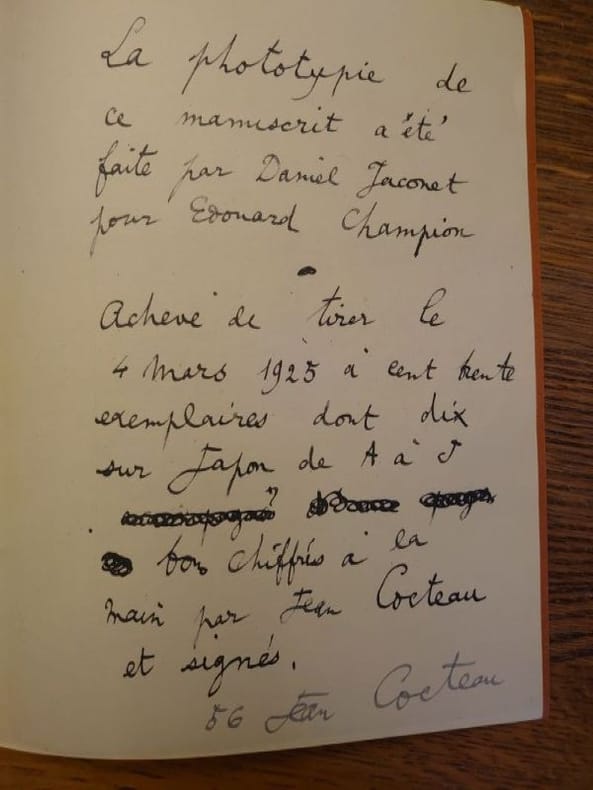 La phototypie de
ce manuscrit a été
faite par Daniel Jacomet
pour Edouard Champion
Achevé de tirer le
4 Mars 1925 à cent trente
exemplaires dont dix
sur Japon de A à J
chiffrés à la
main par Jean Cocteau
et signés.
56 Jean Cocteau